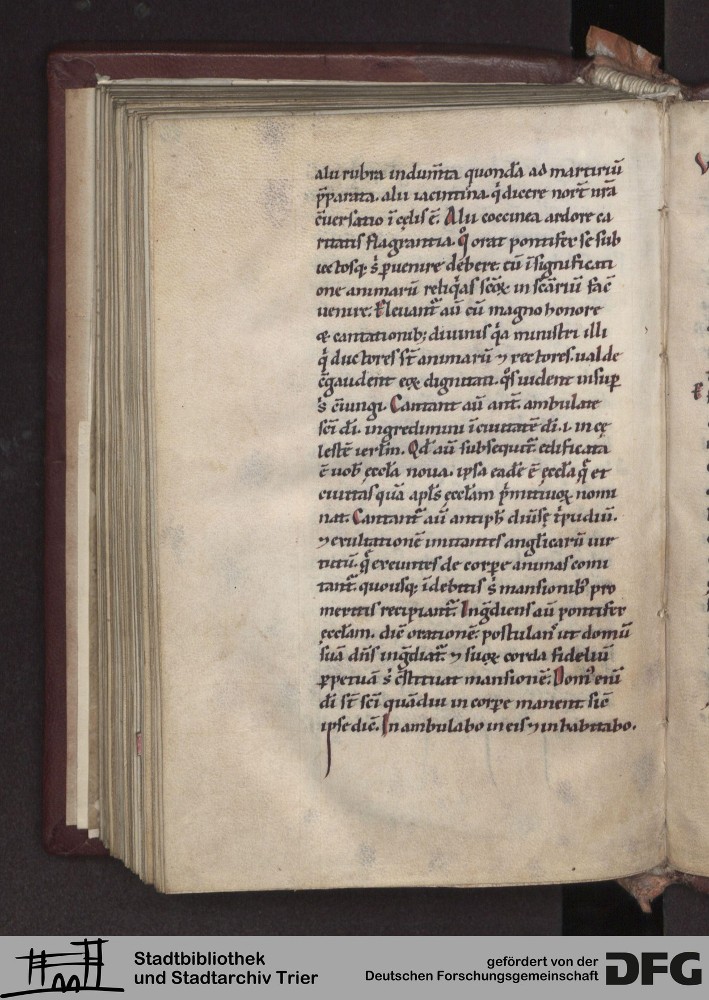 alii rubra indum̄ta quondā ad martiriū
p̄parata. alii iacintina. q̇ dicere nor̄t nr̄a
c̄uersatio ī cęlis ē. Alii coccinea ardore ca
ritatis flagrantia. q̊ orat pontifex se sub
iectosq; s̄ puenire debere. cū īsignificati
one animarū reliq̇as sc̄oꝝ in sc̄ariū fac̄
uenire. Eleuant᷑ aū cū magno honore
& cantationib; diuinis q̇a ministri illi
q̇ ductores st̄ animarū ⁊ rectores. ualde
c̄gaudent eoꝝ dignitati. q̊s uident insup
s̄ c̄iungi. Cantant aū ant̄. ambulate
sc̄i dī. ingredimini ī ciuitatē dī. i. in cę
lestē ierl̄m. Qd̄ aū subsequit᷑. edificata
ē uob̄ ęccl̄a noua. ipsa eadē ē ęccl̄a q̄ et
ciuitas quā apl̄s ęccl̄am p̄mitiuoꝝ nomi
nat. Cantant᷑ aū antiph̄ diūsę t̄pudiū.
⁊ exultationē imitantes anglicarū uir
tutū. q̄ exeuntes de corpe animas comi
tant᷑. quousq; ī debitis s̄ mansionib᷒ pro
meritis recipiant᷑. Ingͣdiens aū pontifex
ęccl̄am. dic̄ orationē. postulans ut domū
suā dn̄s ingͣdiat᷑. ⁊ suoꝝ corda fideliū
ppetuā s̄ c̄stituat mansionē. Dom᷒ enī
dī st̄ sc̄i quādiu in corpe manent sic̄
ipse dic̄. Inambulabo in eis ⁊ inhabitabo.
Stadtbibliothek
und Stadtarchiv Trier
gefördert von der
Deutschen Forschungsgemeinschaft
DFG